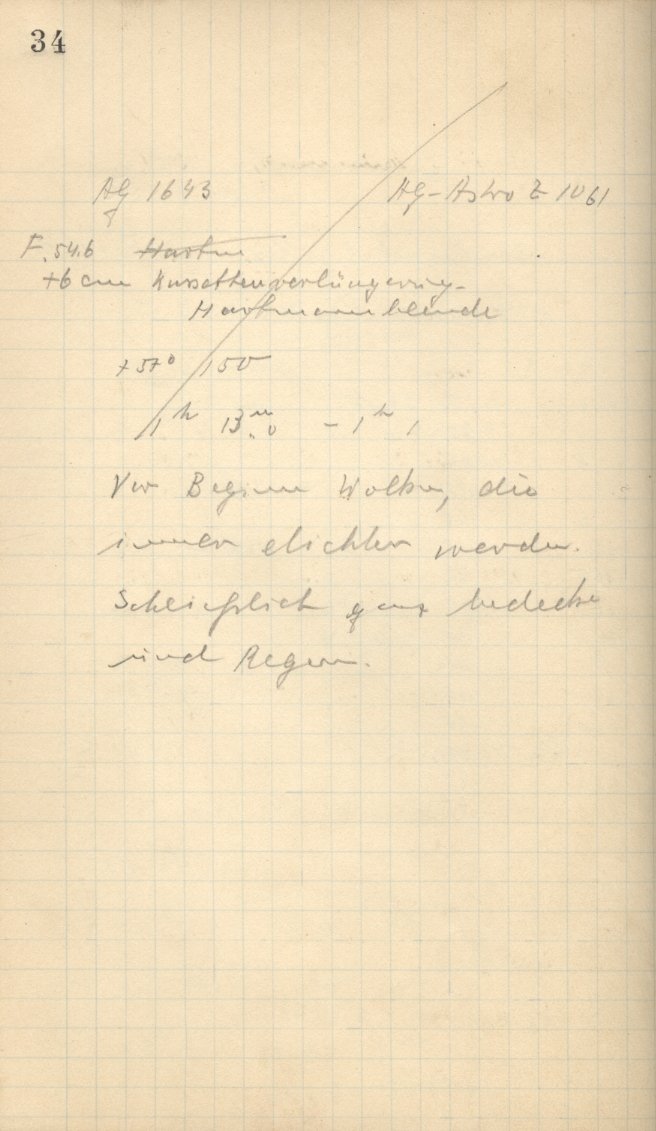 34
AG 1643 AG-Astro Z 1061
F. 54.6 Hartm
+6 cm Kassettenverlängerung-
Hartmannblende
+57° 150
1h 13m.0 - 1h
Vor Beginn Wolken, die
immer dichter werden.
Schließlich ganz bedeckt
und Regen.